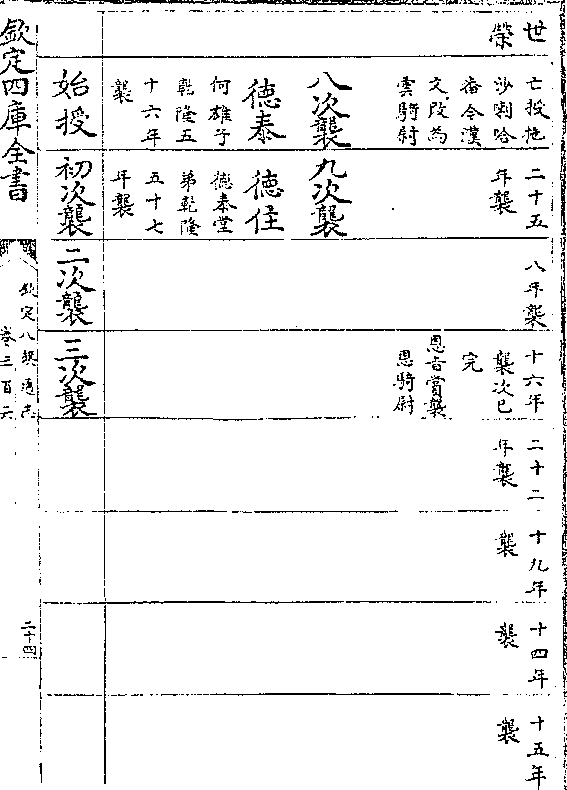 世榮
亡授拖
沙喇哈
番今漢
文改為
雲騎尉
二十五
年襲
八年襲
十六年
襲次已
完
恩旨賞襲
恩騎尉
二十二
年襲
十九年
襲
十四年
襲
十五年
襲
八次襲
德泰
何雄子
乾隆五
十六年
襲
九次襲
德住
德泰堂
弟乾隆
五十七
年襲
始授
初次襲
二次襲
三次襲
欽定四庫全書
欽定八旗通志
卷三百六
二十四